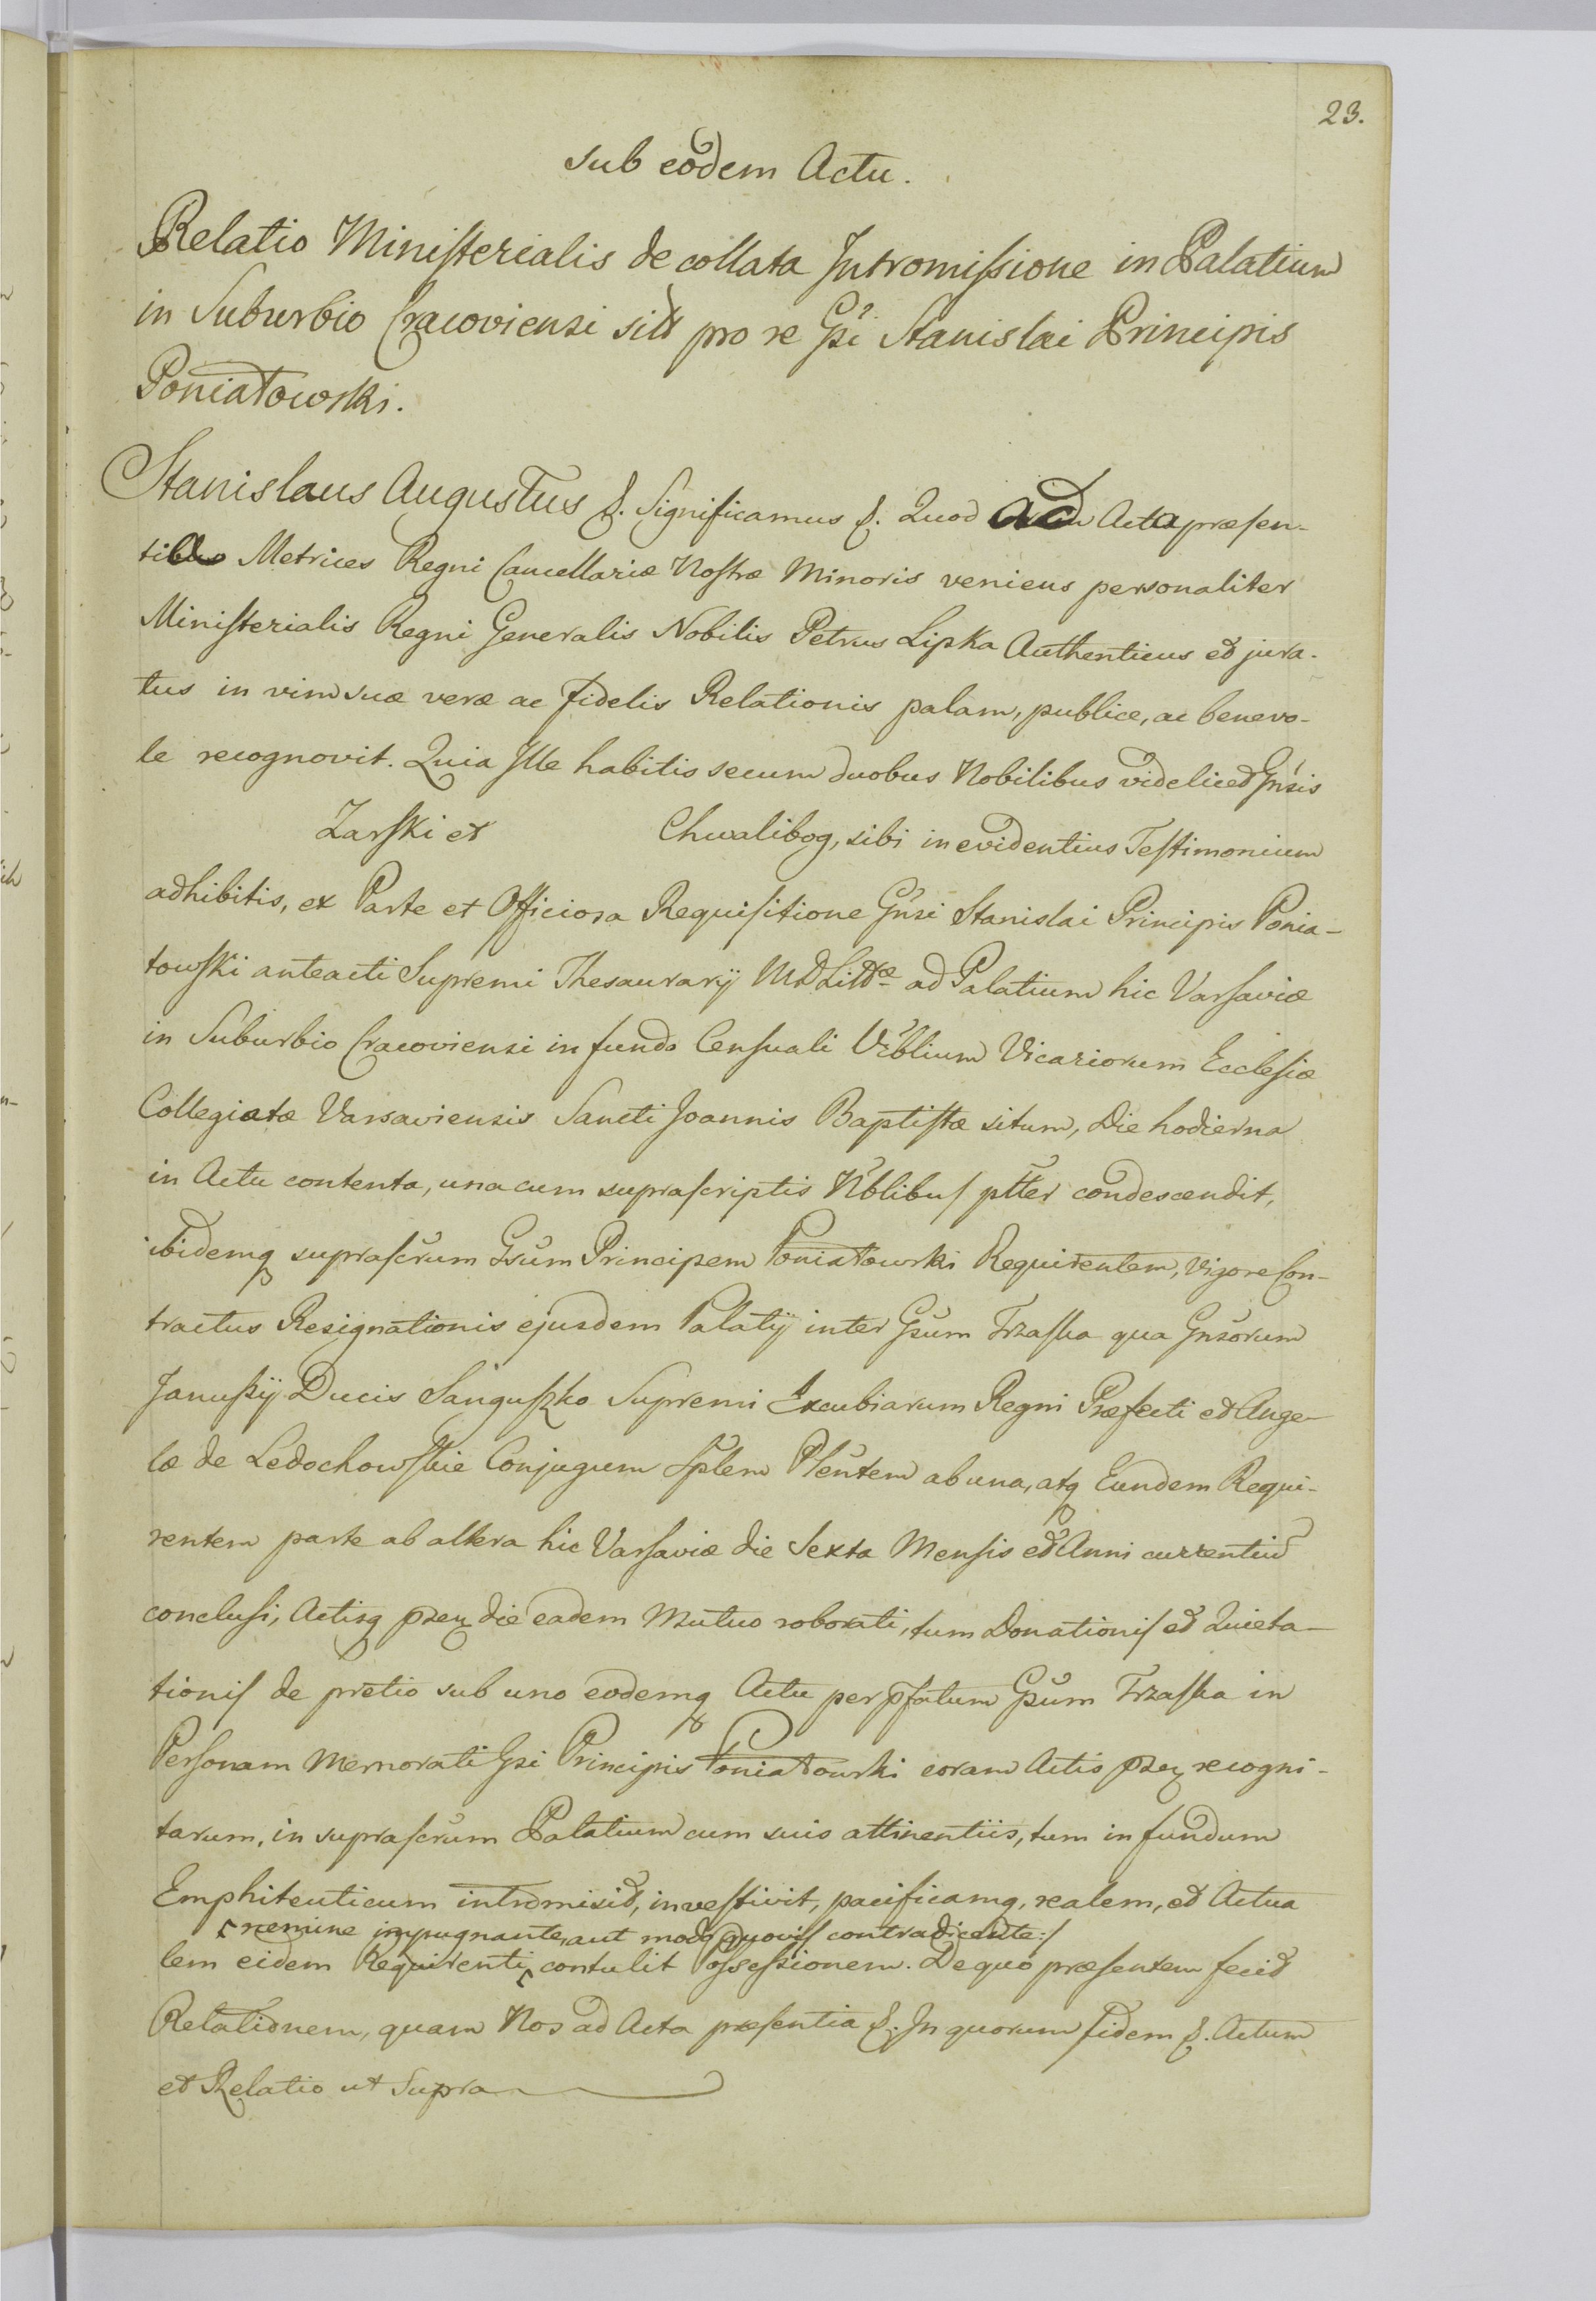 23.
sub eodem Actu.
Relatio Ministerialis de collata Intromissione in Palatium
in Suburbio Cracoviensi sitt pro re Gsi Stanislai Principis
Poniatowski.
Stanislaus Augustus &. Significamus &. Quod ad Acta præsen-
tia Metrices Regni Cancellariæ Nostræ Minoris veniens personaliter
Ministerialis Regni Generalis Nobilis Petrus Lipka Authenticus et jura-
tus in vim suæ veræ ac fidelis Relationis palam, publice, ac benevo-
le recognovit. Quia Ille habitis secum duobus Nobilibus videlicet Gnsis
Zarski et Chwalibog, sibi in evidentius Testimonium
adhibitis, ex Parte et Officiosa Requisitione Gnsi Stanislai Principis Ponia-
towski anteacti Supremi Thesaurarij MDLittæ ad Palatium hic Varsaviæ
in Suburbio Cracoviensi in fundo Censuali Vblium Vicariorum Ecclesiæ
Collegiatæ Varsaviensis Sancti Joannis Baptistæ situm, Die hodierna
in Actu contenta, una cum suprascriptis Nblibus ptter condescendit,
ibidemq suprascrum Gsum Principem Poniatowski Requirentem, vigore Con-
tractus Resignationis ejusdem Palatij inter Gsum Trzaska qua Gnsorum
Janussij Ducis Sanguszko Supremi Excubiarum Regni Præfecti et Ange-
læ de Ledochowskie Conjugum Splem Plentem ab una, atq Eundem Requi-
rentem parte ab altera hic Varsaviæ die Sexta Mensis et Anni currentium
conclusi, Actisq psen die eadem Mutuo roborati, tum Donationis et Quieta-
tionis de pretio sub uno eodemq Actu per pfatum Gsum Trzaska in
Personam Memorati Gsi Principis Poniatowski coram Actis psen recogni-
tarum, in suprascrum Palatium cum suis attinentiis, tum in fundum
Emphiteuticum intromisit, investivit, pacificamq, realem, et Actua
nemine impugnante, aut modo quovis contradicente:/
lem eidem Requirenti contulit Possessionem. De quo præsentem fecit
Relationem, quam Nos ad Acta præsentia &. In quorum fidem &. Actum
et Relatio ut Supra